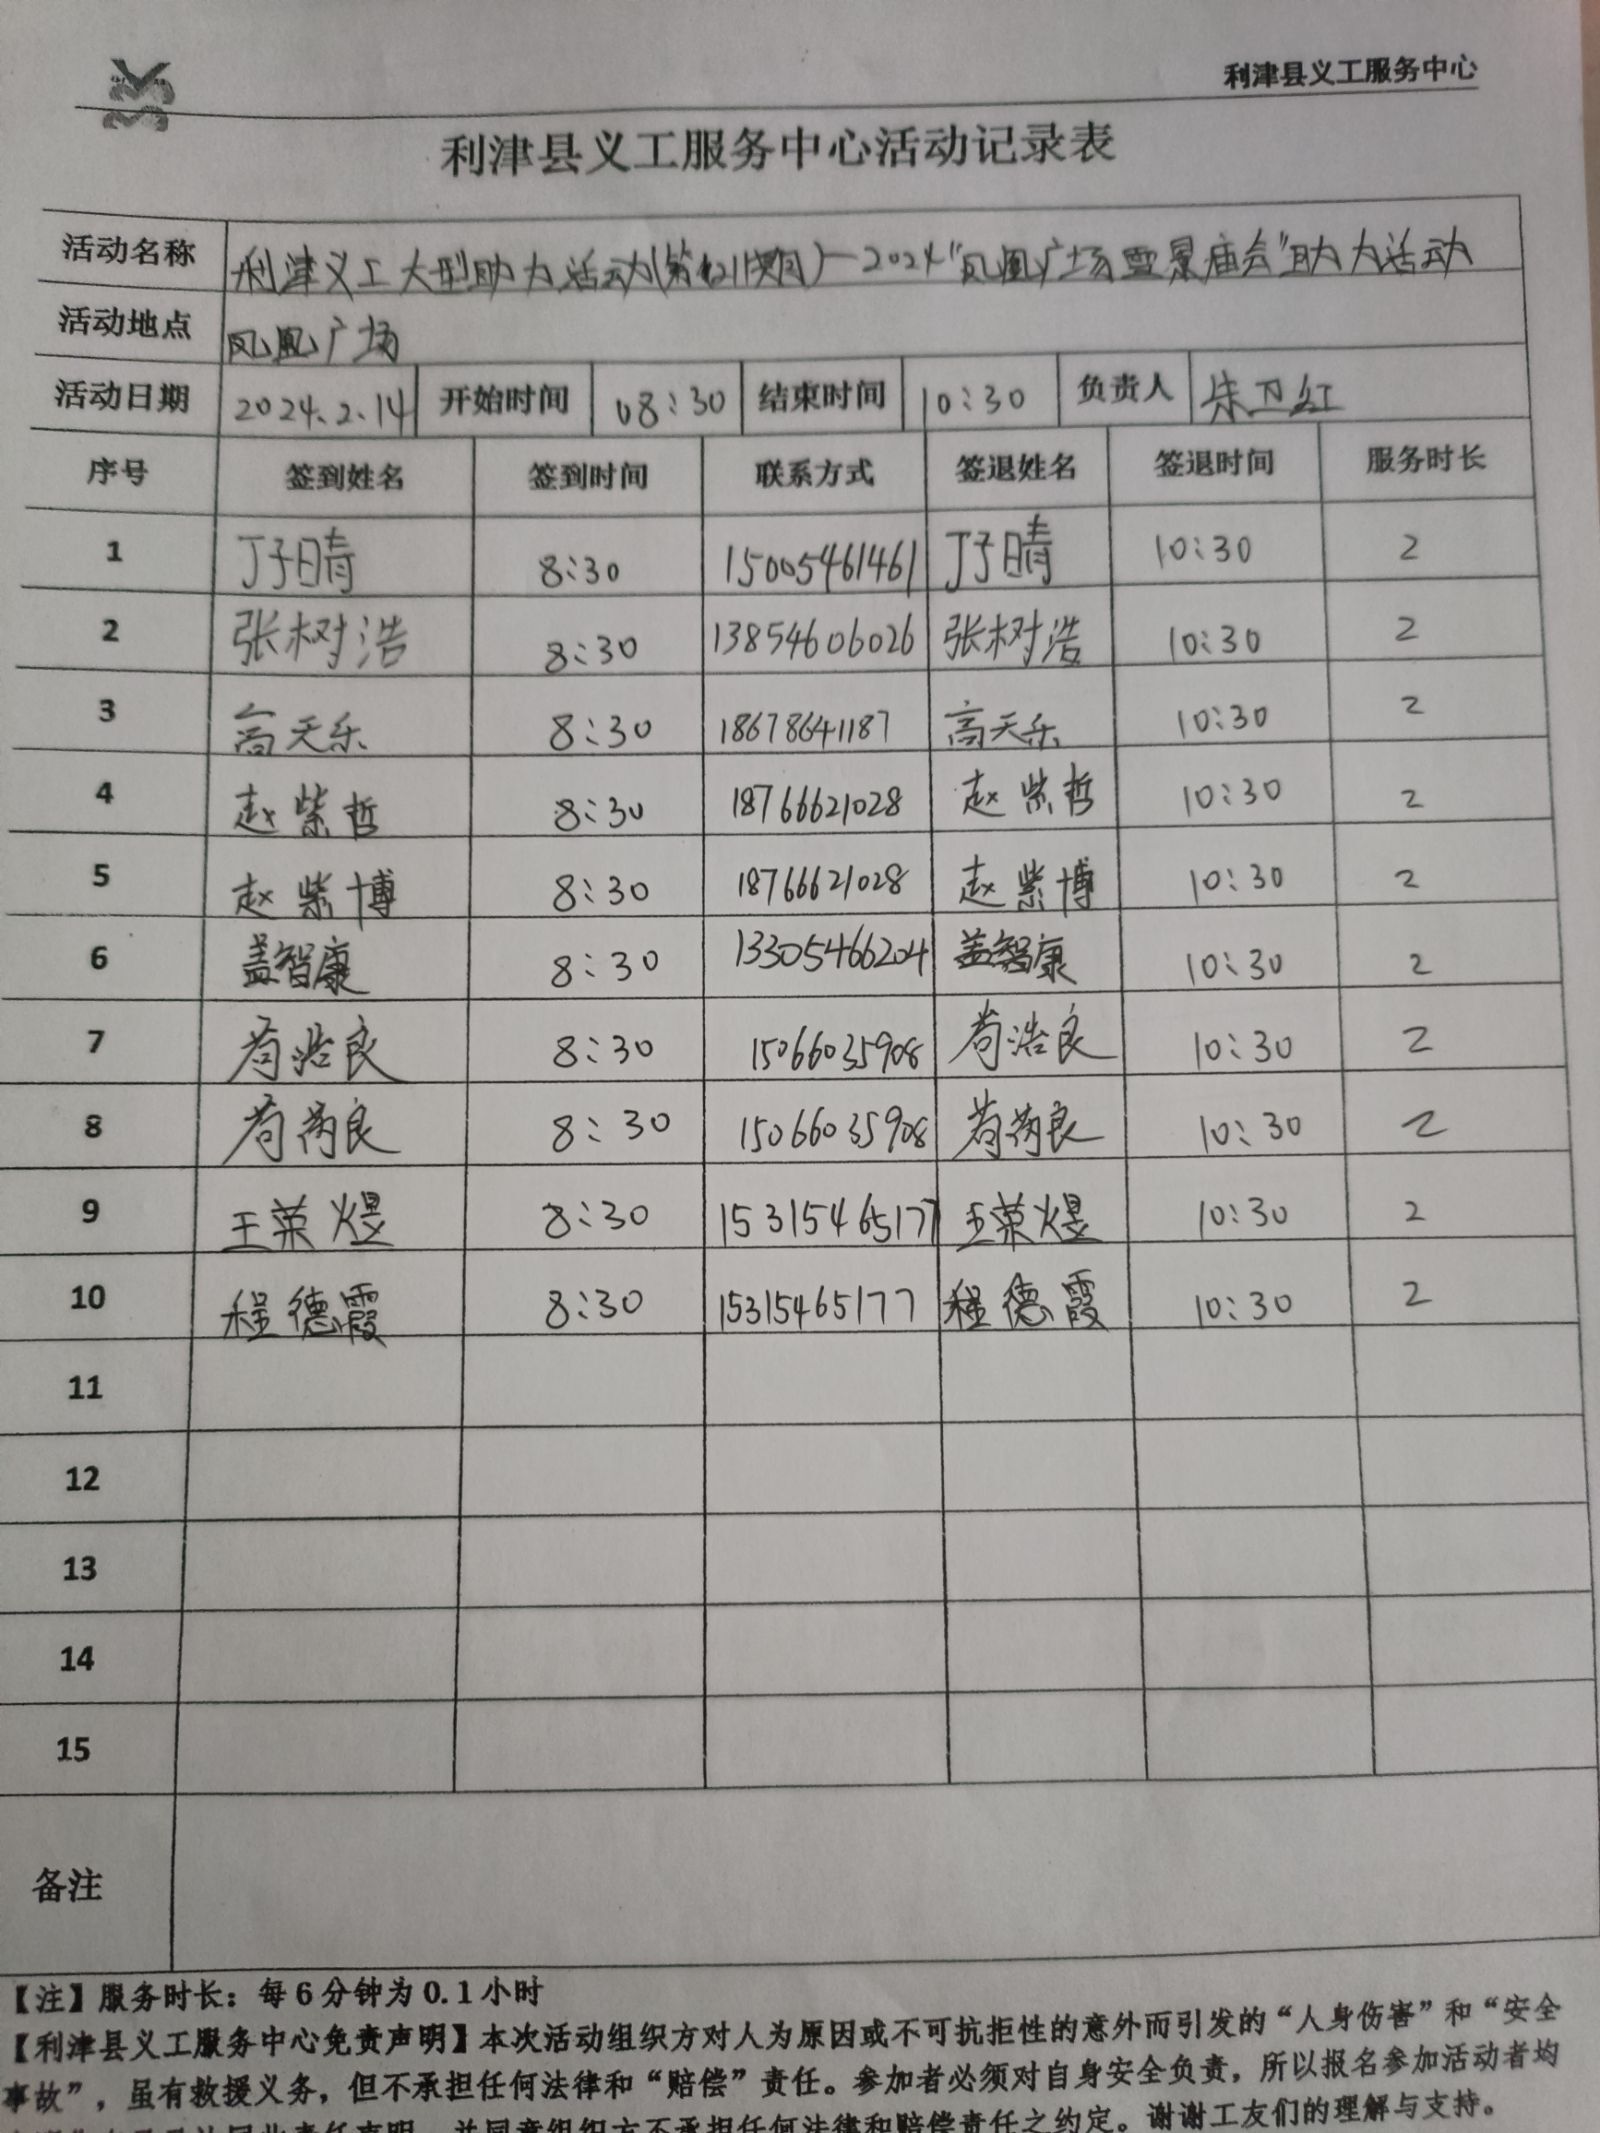 利津县义工服务中心
利津县义工服务中心活动记录表
活动名称 利津义工大型助力活动(第 期)—2024“凤凰广场雪景庙会”助力活动
活动地点 凤凰广场
活动日期 2024.2.14 开始时间 08:30 结束时间 10:30 负责人 朱卫红
序号 签到姓名 签到时间 联系方式 签退姓名 签退时间 服务时长
1 丁子晴 8:30 15005461461 丁子晴 10:30 2
2 张树浩 8:30 13854606026 张树浩 10:30 2
3 高天乐 8:30 18678641187 高天乐 10:30 2
4 赵紫哲 8:30 18766621028 赵紫哲 10:30 2
5 赵紫博 8:30 18766621028 赵紫博 10:30 2
6 盖智康 8:30 13305466204 盖智康 10:30 2
7 苟浩良 8:30 15066035908 苟浩良 10:30 2
8 8:30 15066035908 10:30 2
9 王荣煜 8:30 15315465177 王荣煜 10:30 2
10 程德霞 8:30 15315465177 程德霞 10:30 2
11
12
13
14
15
备注
【注】服务时长：每6分钟为0.1小时
【利津县义工服务中心免责声明】本次活动组织方对人为原因或不可抗拒性的意外而引发的“人身伤害”和“安全
事故”，虽有救援义务，但不承担任何法律和“赔偿”责任。参加者必须对自身安全负责，所以报名参加活动者均
并同意组织方不承担任何法律和赔偿责任之约定。谢谢工友们的理解与支持。